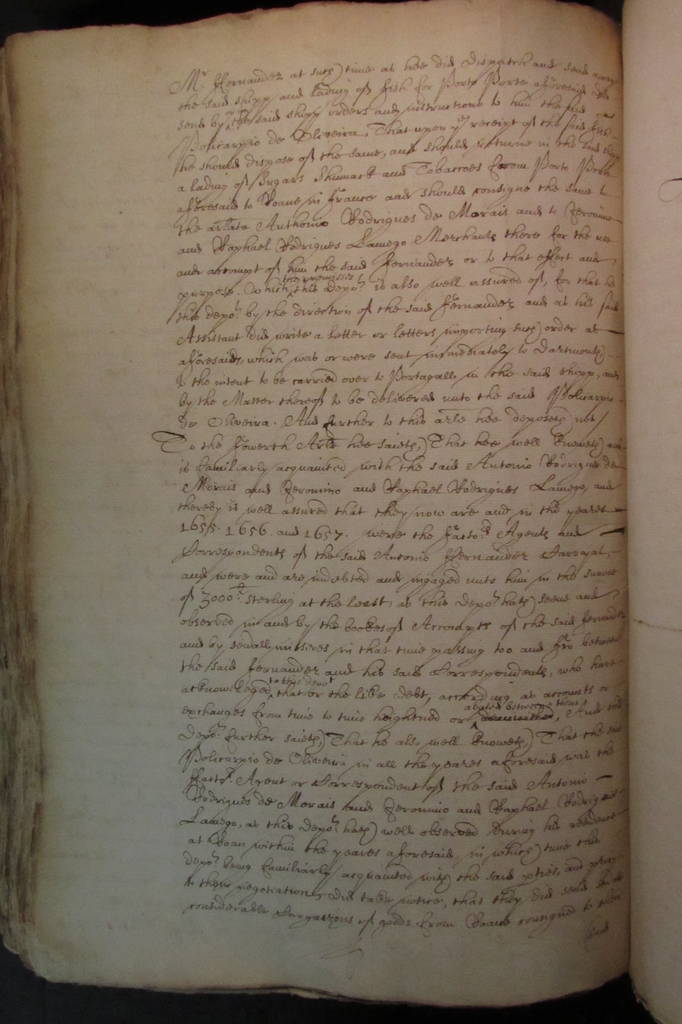 Mr. Fernandez at such time as hee did dispatch and send away
the said shipp and lading of fish for Porto Porte aforesaid did
send by the said shipp orders and instructions to him the said
Policarpio de Oliveira, That upon ye receipt of the said fish
he should dispose of the same, and should returne in the said shipp
a lading of Sugars Shumack and Tobaccoes from Porto Porte
aforesaid to Roane in France and should consigne the same to
the arlate Anthonio Rodrigues de Morais and to Jeronimo
and Raphael Rodrigues Lamego Merchants there for the use
and accompt of him the said Fernandez or to that effect and
purpose. Which the premisses this depot is also well assured of, for that he
this depot by the direction of the said Fernandez and as his said
Assistant did write a letter or letters importing such order as
aforesaid, which was or were sent immediately to Dartmouth
to the intent to be carried over to Portugall in the said shipp, and
by the Master thereof to be delivered unto the said Policarpio
de Oliveira. And further to this arle hee deposeth not
To the fowerth Arle hee saieth, That hee well knoweth and
is familiarly acquainted with the said Antonio Rodrigues de
Morais and Jeronimo and Raphael Rodrigues Lamego, and
thereby is well assured that they now are and in the yeares
1655. 1656. and 1657. were the Factors Agents and
Correspondents of the said Antonio Fernandez Carvajal,
and were and are indebted and ingaged unto him in the summe
of 3000li sterling at the least, as this depot hath seene and
observed in and by the bookes of Accompts of the said Fernandez
and by severall missives in that time passing too and fro betweene
the said Fernandez and his said Correspondents, who have
acknowledged to this depot that or the like debt, according as accounts or
exchanges from time to time heightned or abated betweene them, And this
depot further saieth, That he also well knoweth, That the said
Policarpio de Oliveira in all the yeares aforesaid was the
Factor Agent or Correspondent of the said Antonio
Rodrigues de Morais and Jeronimo and Raphael Rodrigues
Lamego, as this depot hath well observed during his residence
at Roan within the yeares aforesaid, in which time this
depot being familiarly acquainted with the said pties, and privy
to their negotiation, did take notice, that they did send
considerable Cargazons of goods from Roane consigned to